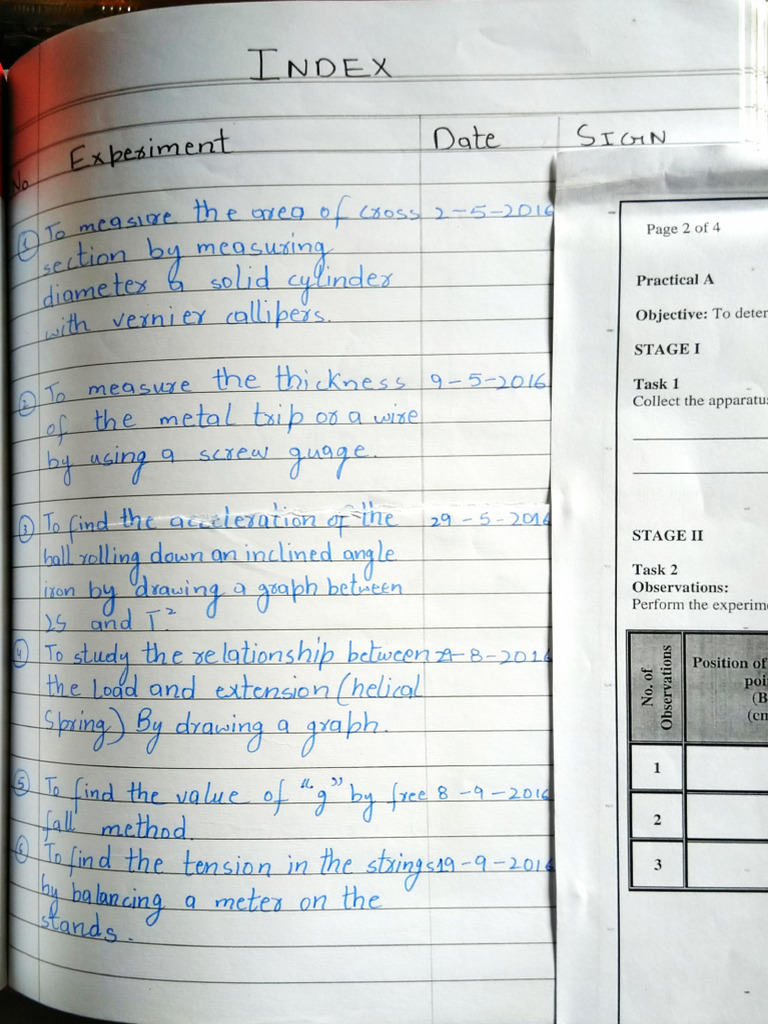 INDEX
No Experiment Date SIGN
1 To measure the area of cross 2-5-2016
section by measuring
diameter a solid cylinder
with vernier callipers.
2 To measure the thickness 9-5-2016
of the metal trip or a wire
by using a screw guage.
3 To find the acceleration of the 29-5-2016
ball rolling down an inclined angle
iron by drawing a graph between
2S and T².
4 To study the relationship between -8-2016
the Load and extension (helical
Spring) By drawing a graph.
5 To find the value of "g" by free 8-9-2016
fall method.
6 To find the tension in the strings 19-9-2016
by balancing a meter on the
stands.
Page 2 of 4
Practical A
Objective: To deter
STAGE I
Task 1
Collect the apparatus
STAGE II
Task 2
Observations:
Perform the experim
No. of
Observations
Position of
poi
(B
(cm
1
2
3